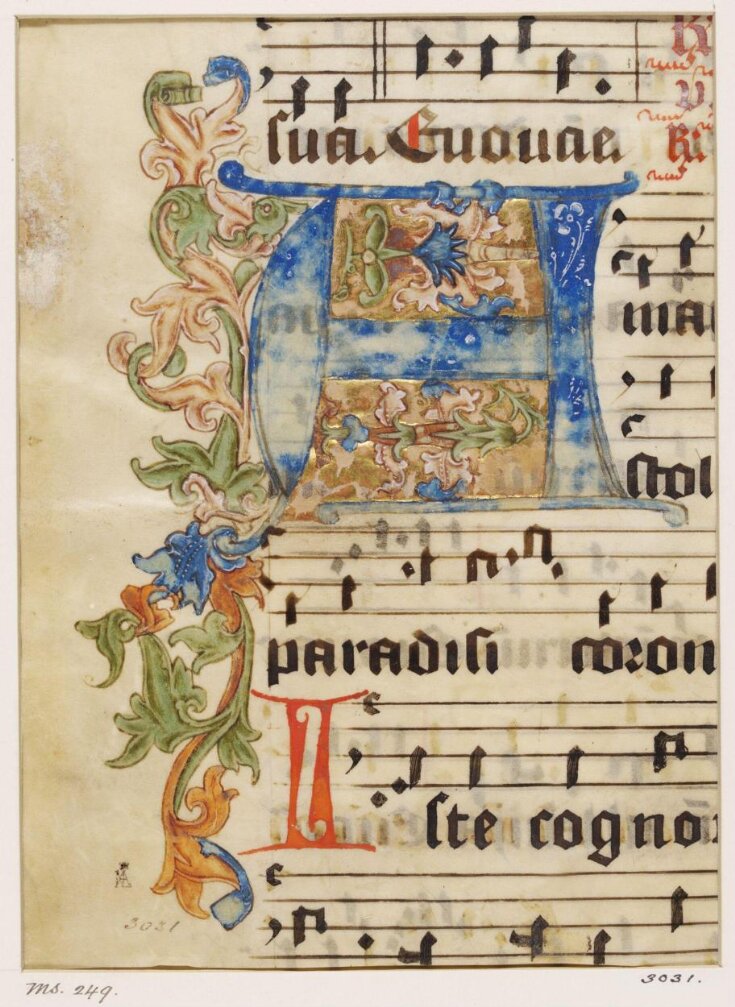 sua. Euouae.
R
V
R.
A
ma
stol
paradisi coron
Iste cogno
3031
Ms. 249.
3031.